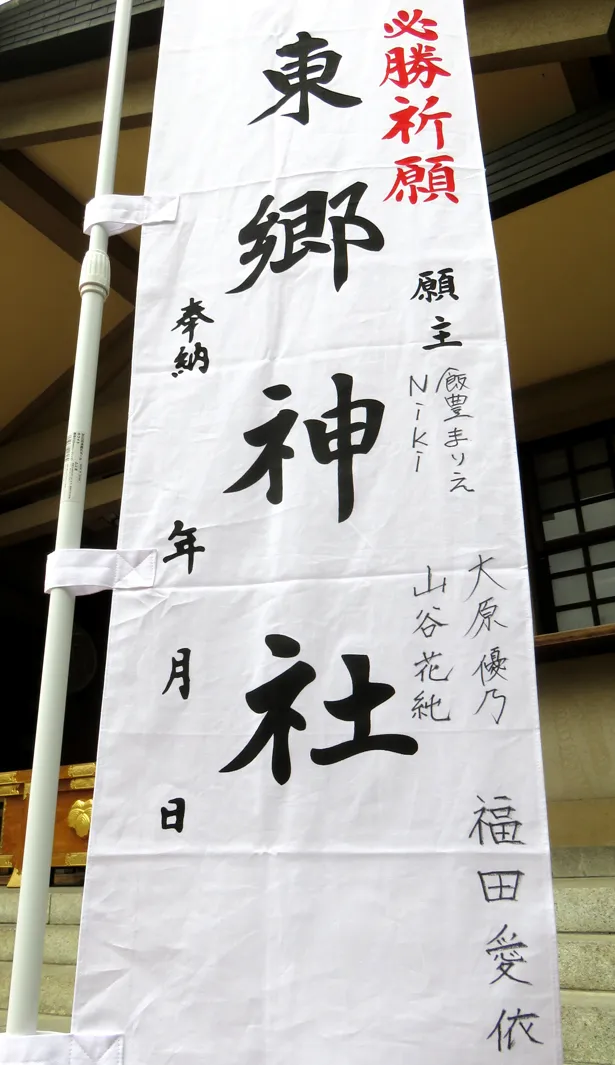 必勝祈願
願主
飯豊まりえ
Niki
大原優乃
山谷花純
福田愛依
東郷神社
奉納
年月日